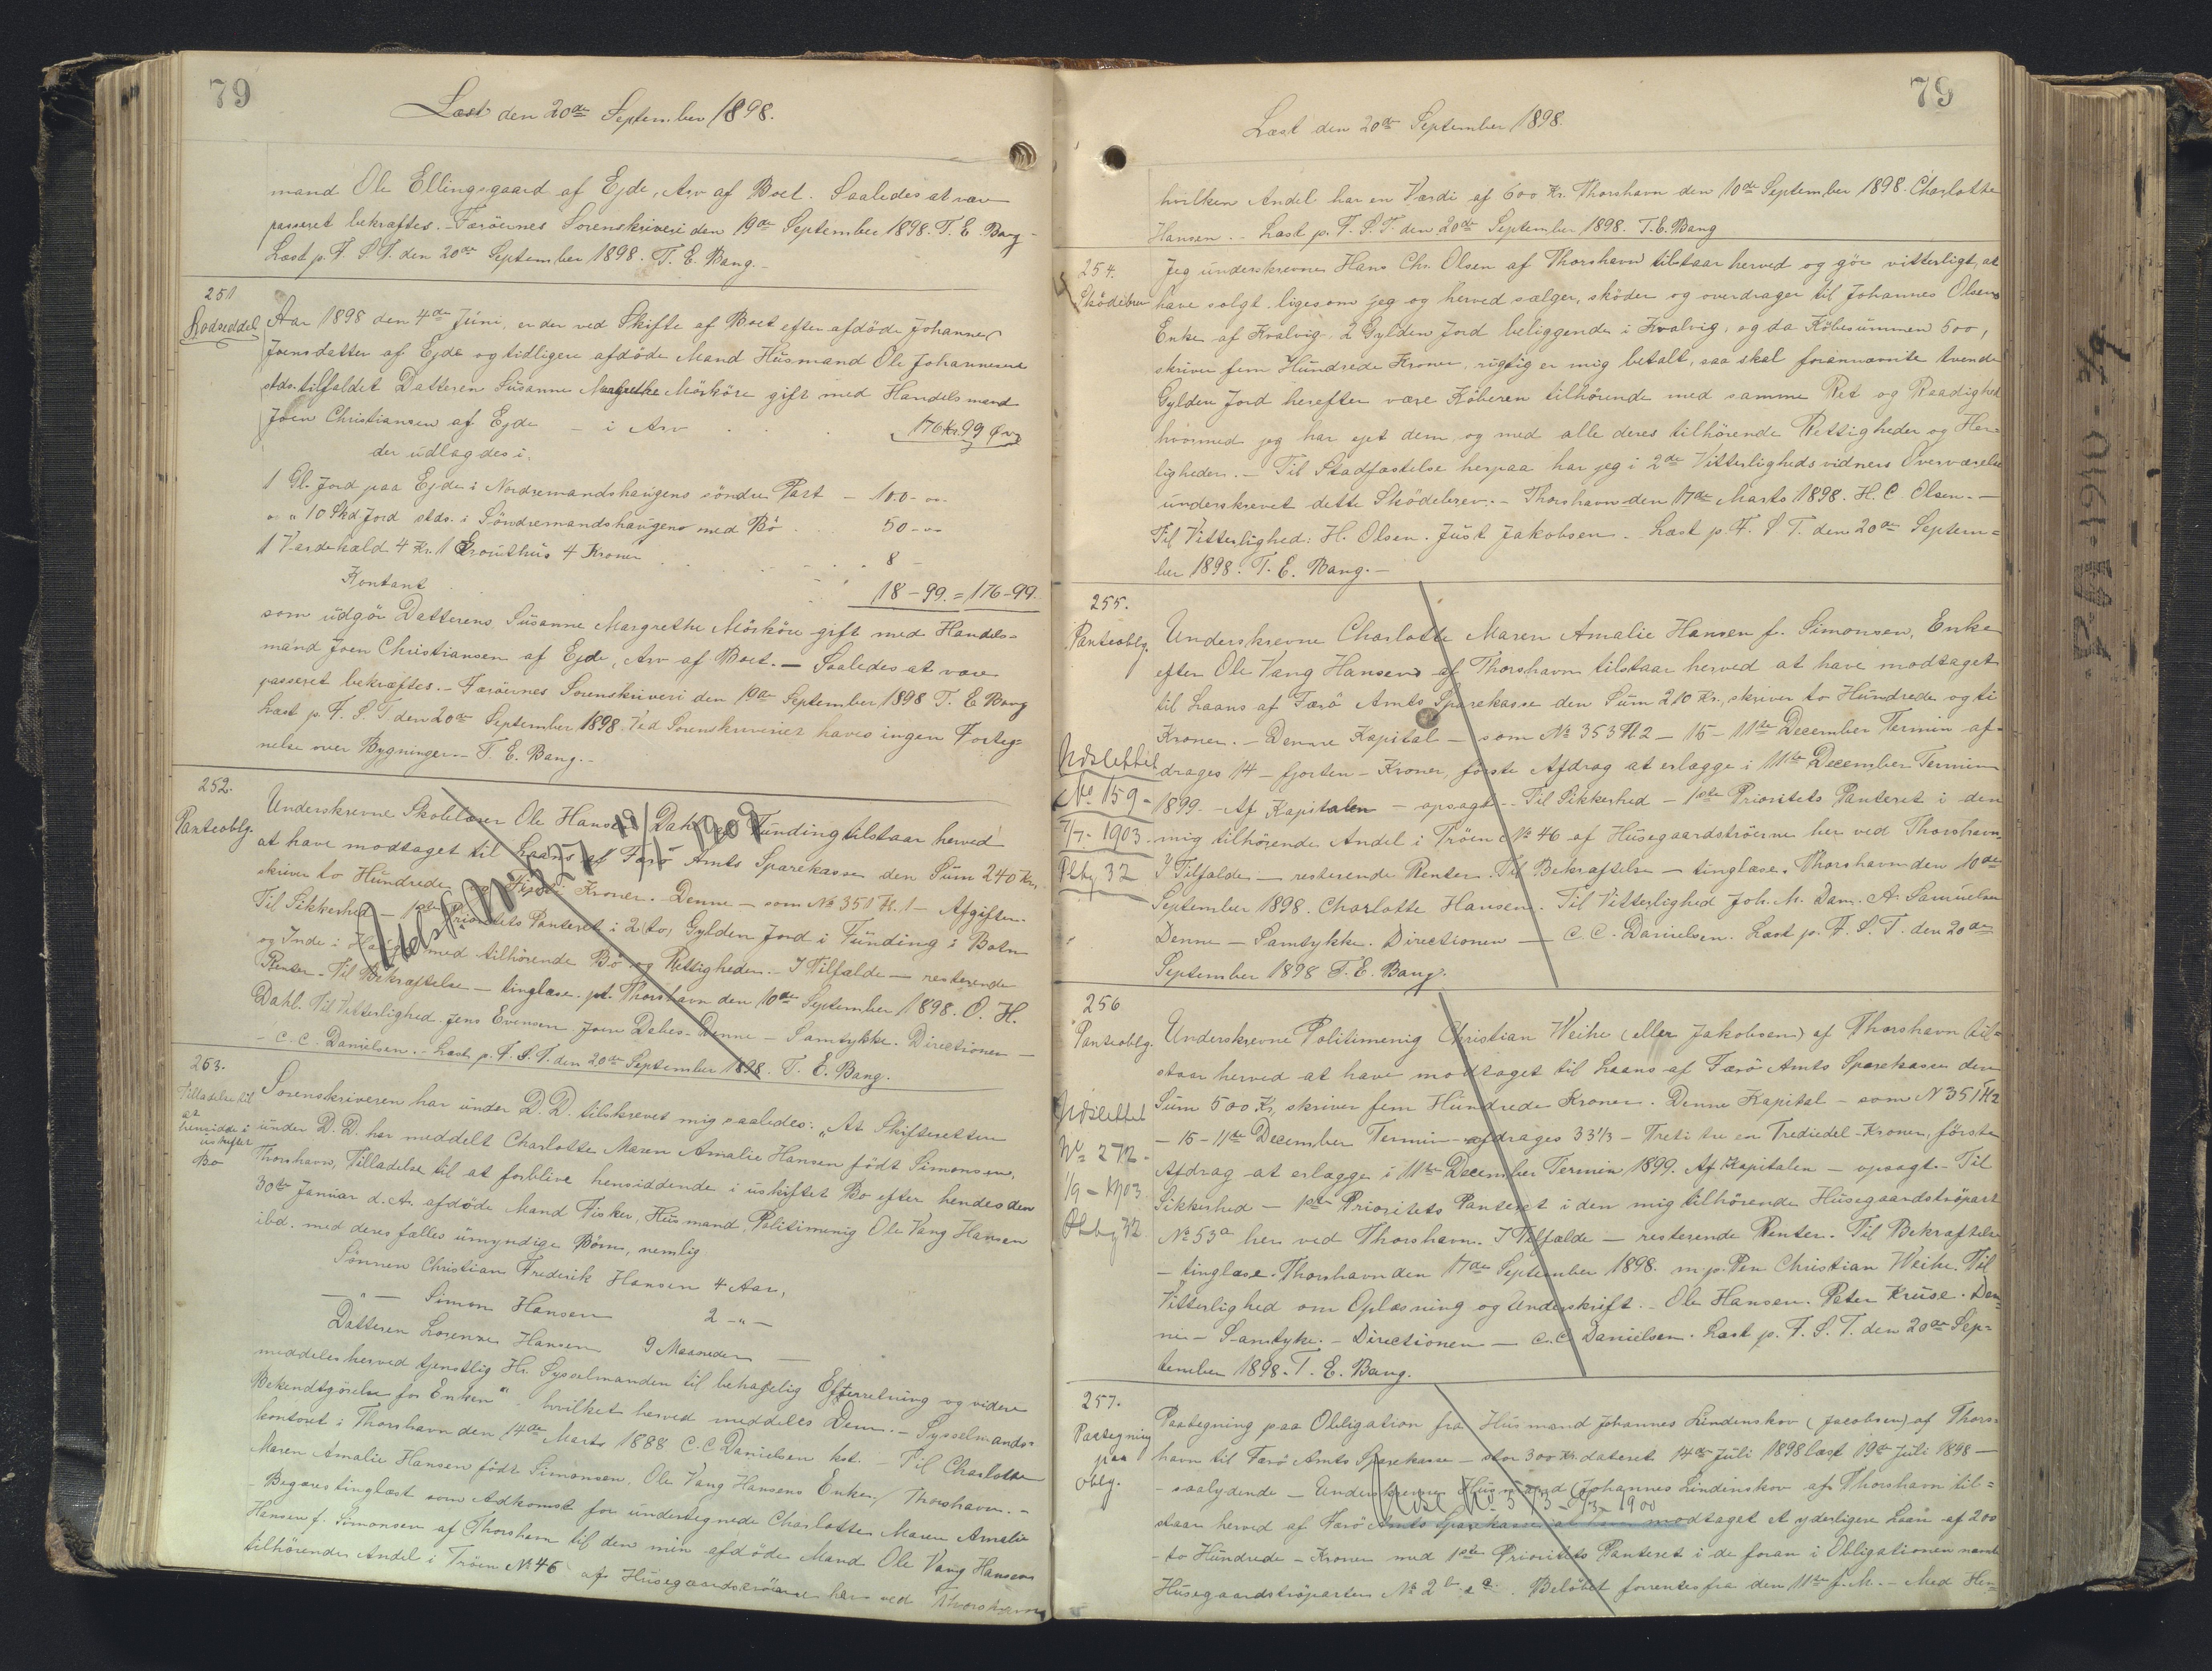 79
Læst den 20de September 1898.
mand Ole Ellingsgaard af Ejde, Arv af Boet. Saaledes at være
passeret bekræftes. - Færöernes Sorenskriveri den 19de September 1898. T. E. Bang -
Læst p. F. S. T. den 20de September 1898. T. E. Bang. -
251
Lodseddel
Aar 1898 den 4de Juni, er der ved Skifte af Boet efter afdöde Johanne
Joensdatter af Ejde og tidligere afdöde Mand Husmand Ole Johannesen
stds. tilfaldet Datteren Susanne Margrethe Mörköre gift med Handelsmand
Joen Christiansen af Ejde - i Arv . . . 176 Kr. 99 Øre
der udlagdes i:
1 Gl. Jord paa Ejde i Nordremandshaugens söndre Part - 100 - "
" " 10 Skd Jord stds. i Söndremandshaugens med Bö . 50 - "
1 Vardehald 4 Kr. 1 Grouthus 4 Kroner . . . 8 -
Kontant . . . 18 - 99. = 176 - 99.
som udgör Datterens Susanne Margrethe Mörköre gift med Handels-
mand Joen Christiansen af Ejde, Arv af Boet. - Saaledes at være
passeret bekræftes. - Færöernes Sorenskriveri den 19de September 1898 T. E. Bang
Læst p. F. S. T. den 20de September 1898. Ved Sorenskriveriet haves ingen Forteg-
nelse over Bygninger. - T. E. Bang. -
252.
Panteoblg.
Underskrevne Skolelærer Ole Hansen Dahl af Funding tilstaar herved
at have modtaget til Laans af Færö Amts Sparekasse den Sum 240 Kr,
skriver to Hundrede og Firti Kroner. Denne - som № 351 Tl. 1 - Afgiften.
Til Sikkerhed - 1ste Prioritets Panteret i 2 (to) Gylden Jord i Funding i Botn
og Inde i med tilhörende Bö og Rettigheder. - I Tilfælde - resterende
Renter - Til Bekræftelse - tinglæse. pt. Thorshavn den 10de September 1898. O. H.
Dahl. Til Vitterlighed. Jens Evensen Joen Dahes. Denne - Samtykke. Directionen -
- C. C. Danielsen. - Læst p. F. S. T. den 20de September 1898. T. E. Bang.
Udslt № 27 19/1 1909
253.
Tilladelse til
at
hensidde i
uskiftet
Bo
Sorenskriveren har under D. D. tilskrevet mig saaledes: "At Skifteretten
under D. D. har meddelt Charlotte Maren Amalie Hansen födt Simonsen,
Thorshavn, Tilladelse til at forblive hensiddende i uskiftet Bo efter hendes den
30te Januar d. A. afdöde Mand Fisker, Husmand, Politimenig Ole Vang Hansen
ibd. med deres fælles umyndige Börn, nemlig
Sönnen Christian Frederik Hansen 4 Aar,
- " - Simon Hansen 2 - " -
Datteren Lorenne Hansen 9 Maaneder -
meddeles herved tjenstlig Hr. Sysselmanden til behagelig Efterretning og videre
Bekendtgörelse for Enken" - hvilket herved meddeles Dem. - Sysselmands-
kontoret i Thorshavn den 14de Marts 1888 C. C. Danielsen kst. - Til Charlotte
Maren Amalie Hansen födt Simonsen. Ole Vang Hansens Enke / Thorshavn. -
- Begæres tinglæst som Adkomst for undertegnede Charlotte Maren Amalie
Hansen f. Simonsen af Thorshavn til den min afdöde Mand Ole Vang Hansen
tilhörende Andel i Tröen № 46 af Husegaardströerne her ved Thorshavn
79
Læst den 20de September 1898.
hvilken Andel har en Værdi af 600 Kr. Thorshavn den 10de September 1898. Charlotte
Hansen. - Læst p. F. S. T. den 20de September 1898. T. E. Bang
254.
Sködebrev
Jeg underskrevne Hans Chr. Olsen af Thorshavn tilstaar herved og gör vitterligt, at
have solgt ligesom jeg og herved sælger, sköder og overdrager til Johannes Olsens
Enke af Kvalvig 2 Gylden Jord beliggende i Kvalvig, og da Köbesummen 500,
skriver fem Hundrede Kroner, rigtig er mig betalt, saa skal forannævnte tvende
Gylden Jord herefter være Köberen tilhörende med samme Ret og Raadighed
hvormed jeg har ejet dem og med alle deres tilhörende Rettigheder og Her-
ligheder. - Til Stadfæstelse herpaa har jeg i 2de Vitterlighedsvidners Overværelse
underskrevet dette Sködebrev. - Thorshavn den 17de Marts 1898. H. C. Olsen. -
Til Vitterlighed: H. Olsen. Just Jakobsen. Læst p. F. S. T. den 20de Septem-
ber 1898. T. E. Bang. -
255.
Panteoblg.
Udslettet
№ 159 -
7/7 - 1903.
Pbtg 32
Underskrevne Charlotte Maren Amalie Hansen f. Simonsen, Enke
efter Ole Vang Hansen af Thorshavn tilstaar herved at have modtaget
til Laans af Færö Amts Sparekasse den Sum 210 Kr., skriver to Hundrede og ti
Kroner. - Denne Kapital - som № 353 Tl. 2 - 15 - 11te December Termin af-
drages 14 - fjorten - Kroner, förste Afdrag at erlægge i 11te December Termin
1899. - Af Kapitalen - opsagt - Til Sikkerhed - 1ste Prioritets Panteret i den
mig tilhörende Andel i Tröen № 46 af Husegaardströerne her ved Thorshavn.
I Tilfælde - resterende Renter. Til Bekræftelse - tinglæse. Thorshavn den 10de
September 1898. Charlotte Hansen. Til Vitterlighed Joh. M. Dam. A. Samuelsen
Denne - Samtykke. Directionen - C. C. Danielsen. Læst p. F. S. T. den 20de
September 1898 T. E. Bang.
256
Panteoblg.
Udslettet
№ 272 -
1/9 - 1903
Pbtg 32
Underskrevne Politimenig Christian Weihe (eller Jakobsen) af Thorshavn til-
staar herved at have modtaget til Laans af Færö Amts Sparekasse den
Sum 500 Kr, skriver fem Hundrede Kroner. Denne Kapital - som № 351 Tl 2
- 15 - 11te December Termin - afdrages 33 1/3 - Treti tre en Trediedel - Kroner, förste
Afdrag at erlægge i 11te December Termin 1899. Af Kapitalen - opsagt - Til
Sikkerhed - 1ste Prioritets Panteret i den mig tilhörende Husegaardströpart
№ 53a her ved Thorshavn. I Tilfælde - resterende Renter. Til Bekræftelse
- tinglæse. Thorshavn den 17de September 1898. m. p. Pen Christian Weihe. Til
Vitterlighed om Oplæsning og Underskrift. - Ole Hansen. Peter Kruse. Den-
ne - Samtyke. - Directionen - C. C. Danielsen. Læst p. F. S. T. den 20de Sep-
tember 1898. T. E. Bang.
257.
Paategning
paa
Oblg.
Paategning paa Obligation fra Husmand Johannes Lindenskov (Jacobsen) af Thors-
havn til Færö Amts Sparekasse - stor 300 Kr. dateret 14de Juli 1898 læst 19de Juli 1898 -
- saalydende - Underskrevne Husmand Johannes Lindenskov af Thorshavn til-
Udsl № 573 - 1900
staar herved af Færö Amts Sparekasse at have modtaget et yderligere Laan af 200
- to Hundrede - Kroner med 1ste Prioritets Panteret i de foran i Obligationen nævnte
Husegaardströparter № 2 b. Belöbet forrentes fra den 11te f. M. - Med Hen-